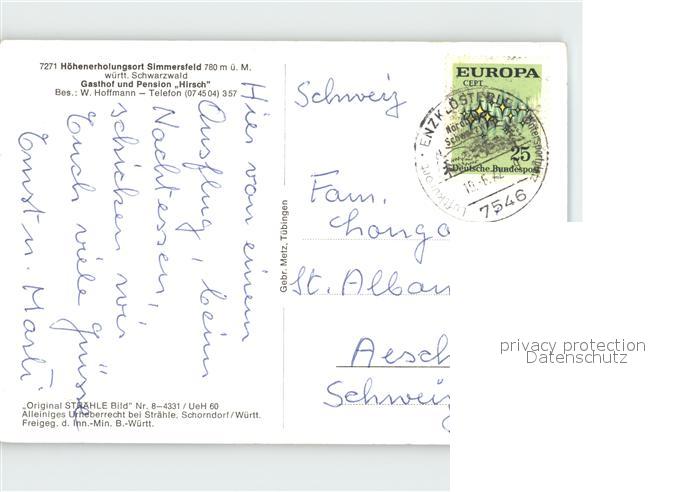 7271 Höhenerholungsort Simmersfeld 780 m ü. M.
württ. Schwarzwald
Gasthof und Pension „Hirsch"
Bes.: W. Hoffmann — Telefon (07 45 04) 3 57
Hier von einem
Ausflug, beim
Nachtessen,
schicken wir
Euch viele Grüsse
Ernst u. Marti
Gebr. Metz, Tübingen
„Original STRÄHLE Bild" Nr. 8—4331 / UeH 60
Alleiniges Urheberrecht bei Strähle, Schorndorf/Württ.
Freigeg. d. Inn.-Min. B.-Württ.
EUROPA
CEPT
25
Deutsche Bundespost
ENZKLÖSTERLE
Luftkurort
7546
Schweiz
Fam.
Longa
St. Alban
Aesch
Schweiz
privacy protection
Datenschutz